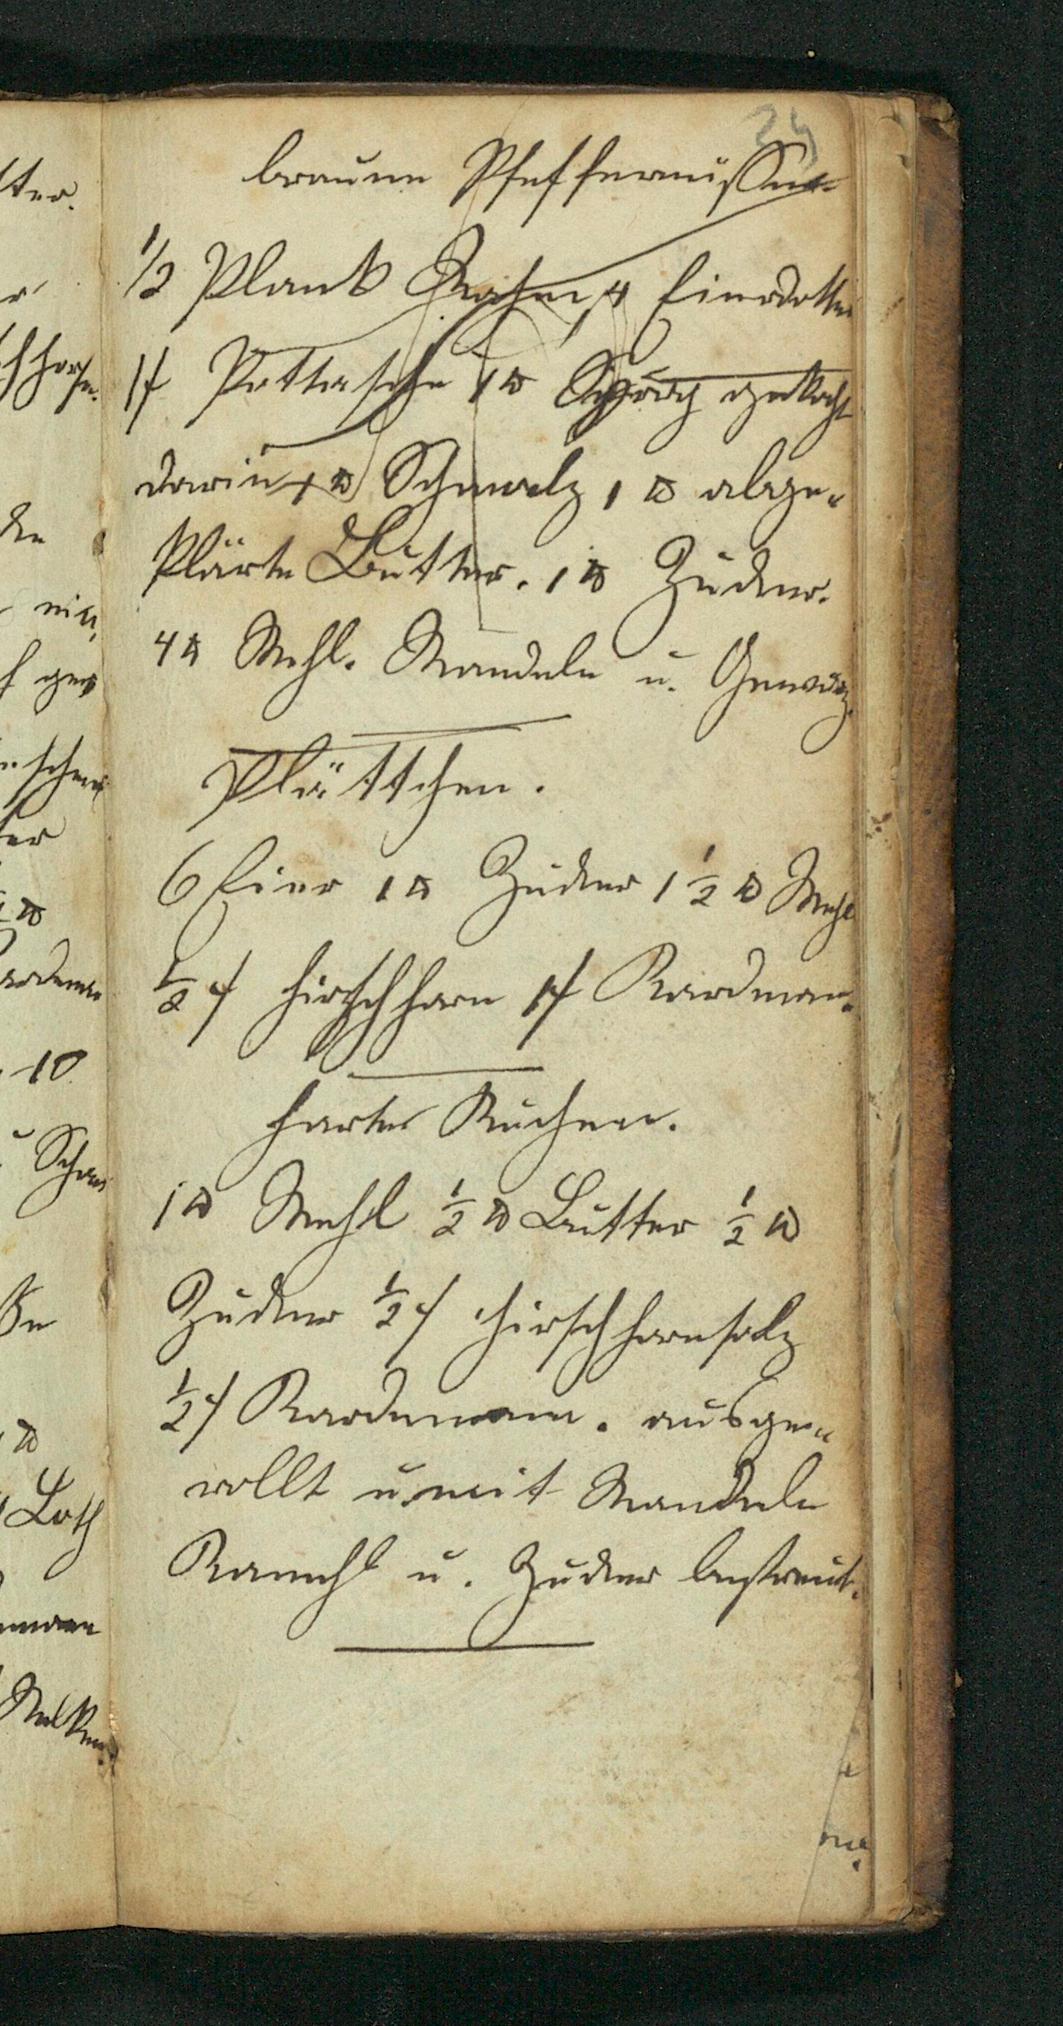 24
braune Pfeffernüsse
1/2 Plank Rahm 4 Eierdotter
1 f Pottasche 1 ℔ Syrop gekocht
darin 1 ℔ Schmalz 1 ℔ abge„
klärte Butter. 1 ℔ Zucker.
4 ℔ Mehl. Mandeln u. Gewürz.
Plättchen.
6 Eier 1 ℔ Zucker 1 1/2 ℔ Mehl
1/2 f Hirschhorn 1 f Kardmom.
harter Kuchen.
1 ℔ Mehl 1/2 ℔ Butter 1/2 ℔
Zucker 1/2 f Hirschhornsalz
1/2 f Kardemom. ausge„
rollt u mit Mandeln
Kanehl u. Zucker bestreut.